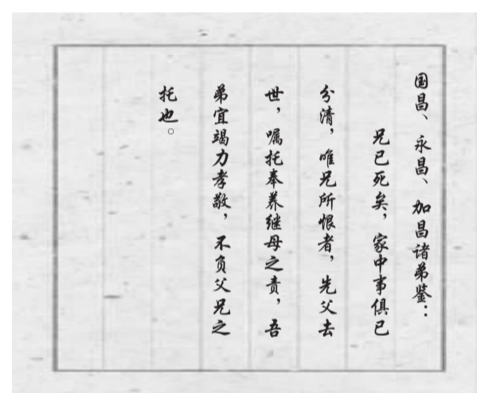 国昌、永昌、加昌诸弟鉴：
兄已死矣，家中事俱已
分清，唯兄所恨者，先父去
世，嘱托奉养继母之责，吾
弟宜竭力孝敬，不负父兄之
托也。